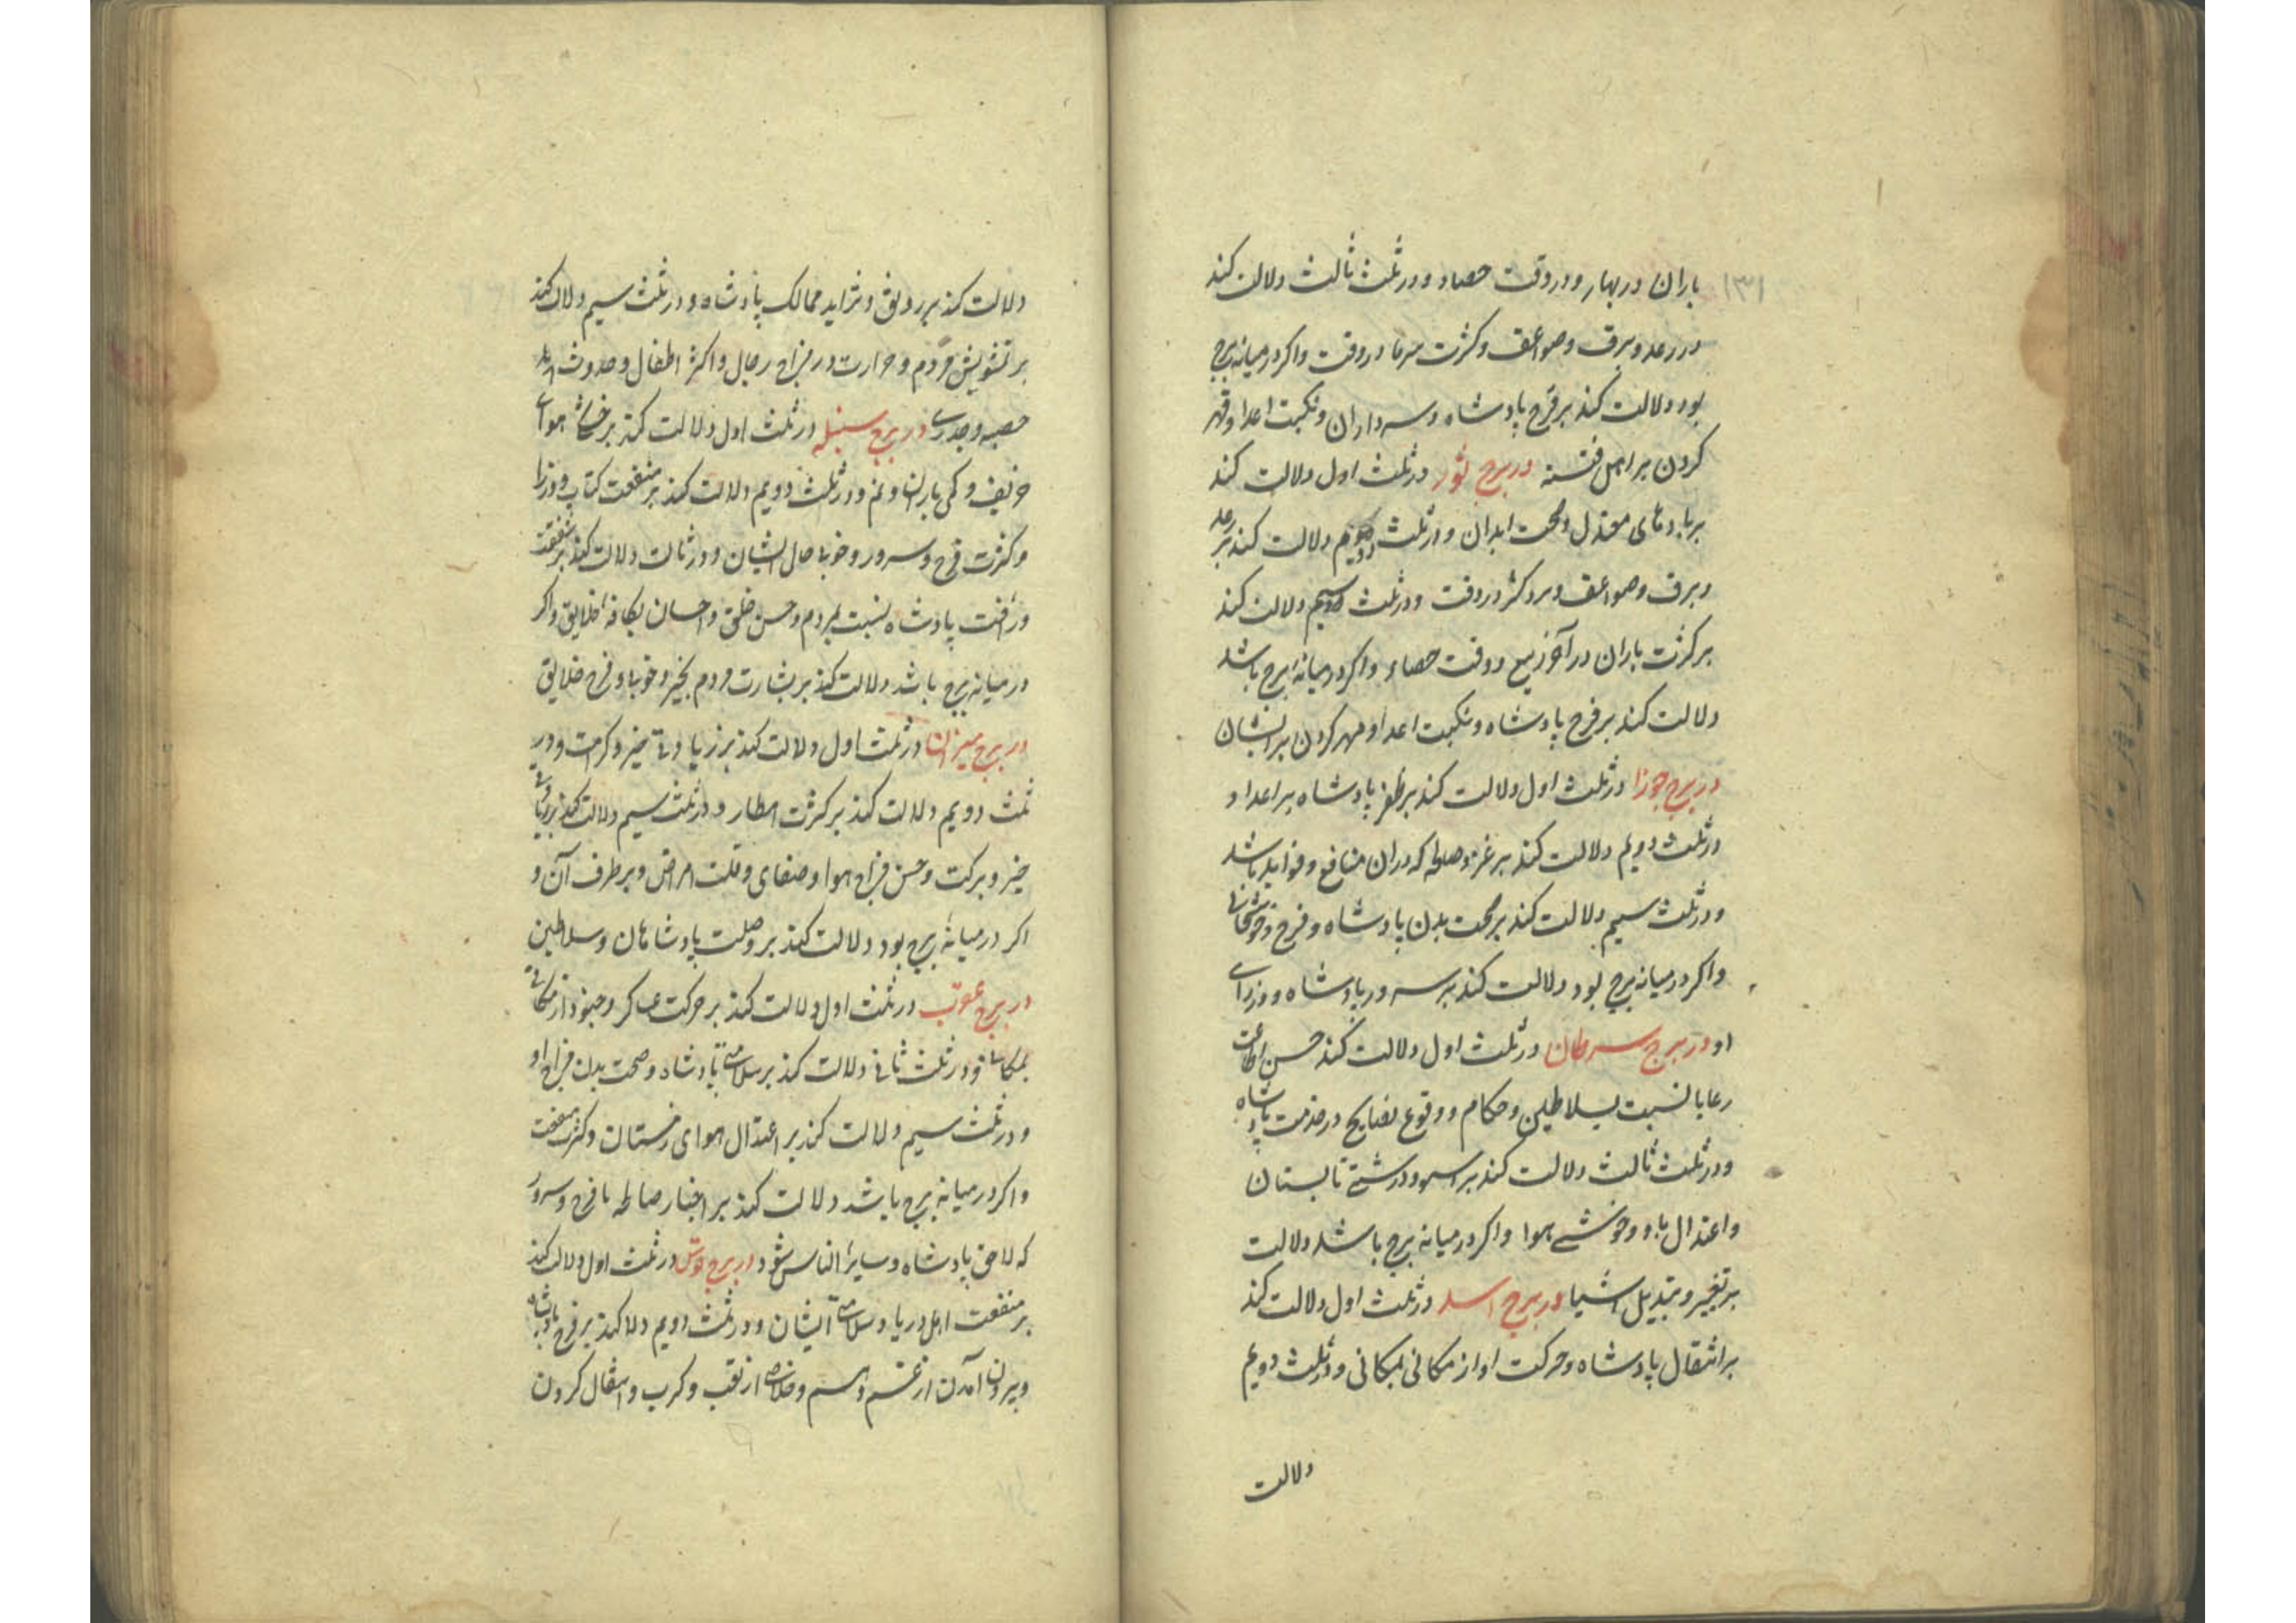 باران در بهار و در وقت حصاد و در ثلث ثالث دلالت کند
در رعد و برق و صواعق و کثرت سرما در وقت و اکر در میانه برج
بود دلالت کند بر فرح پادشاه و سرداران و نکبت اعدا و قهر
کردن بر اهل فتنه در برج ثور در ثلث اول دلالت کند
بر بادهای معتدل و صحت ابدان و در ثلث دویم دلالت کند بر رعد
و برق و صواعق و برد کثر در وقت و در ثلث سیم دلالت کند
بر کثرت باران در آخر ربیع و وقت حصاد و اکر در میانه برج باشد
دلالت کند بر فرح پادشاه و نکبت اعدا و قهر کردن بر ایشان
در برج جوزا در ثلث اول دلالت کند بر ظفر پادشاه بر اعدا و
در ثلث دویم دلالت کند بر که در ان منافع و فواید باشد
و در ثلث سیم دلالت کند بر صحت بدن پادشاه و فرح و خوشحالی
و اکر در میانه برج بود دلالت کند بر سرور پادشاه و وزرای
او در برج سرطان در ثلث اول دلالت کند حسن اطاعت
رعایا نسبت بسلاطین و حکام و وقوع نصایح در خدمت پادشاه
و در ثلث ثالث دلالت کند بر تابستان
و اعتدال باد و خوشی هوا و اکر در میانه برج باشد دلالت
بر تغییر و تبدیل اشیا در برج اسد در ثلث اول دلالت کند
بر انتقال پادشاه و حرکت او از مکانی بمکانی و در ثلث دویم
دلالت
دلالت کند بر رونق و تزاید ممالک پادشاه و در ثلث سیم دلالت کند
بر تشویش مردم و حرارت در مزاج رجال و اکثر اطفال و حدوث
حصبه و جدری در برج سنبله در ثلث اول دلالت کند بر هوای
خریف و کمی باران و نم و در ثلث دویم دلالت کند بر منفعت کتاب و وزرا
و کثرت فرح و سرور و خوبی حال ایشان و در ثالث دلالت کند بر شفقت
و رافت پادشاه نسبت بمردم و حسن خلق و احسان بکافه خلایق و اکر
در میانه برج باشد دلالت کند بر بشارت مردم بخیر و خوبی و فرح خلایق
در برج میزان در ثلث اول دلالت کند بر زیادتی خیر و کرمت و در
ثلث دویم دلالت کند بر کثرت امطار و در ثلث سیم دلالت کند بر
خیر و برکت و حسن مزاج هوا و صفای و قلت امراض و برطرف آن و
اکر در میانه برج بود دلالت کند بر وصلت پادشاهان و سلاطین
در برج عقرب در ثلث اول دلالت کند بر حرکت عساکر و جنود از مکانی
بمکانی و در ثلث ثانی دلالت کند بر سلامتی پادشاه و صحت بدن و مزاج او
و در ثلث سیم دلالت کند بر اعتدال هوای زمستان و کثرت منفعت
و اکر در میانه برج باشد دلالت کند بر اخبار صالحه با فرح و سرور
که لاحق پادشاه و سایر الناس شود در برج قوس در ثلث اول دلالت کند
بر منفعت اهل دریا و سلامتی ایشان و در ثلث دویم دلا کند بر فرح پادشاه
و بیرون آمدن از غم و هم و خلاصی از تعب و کرب و انتقال کردن